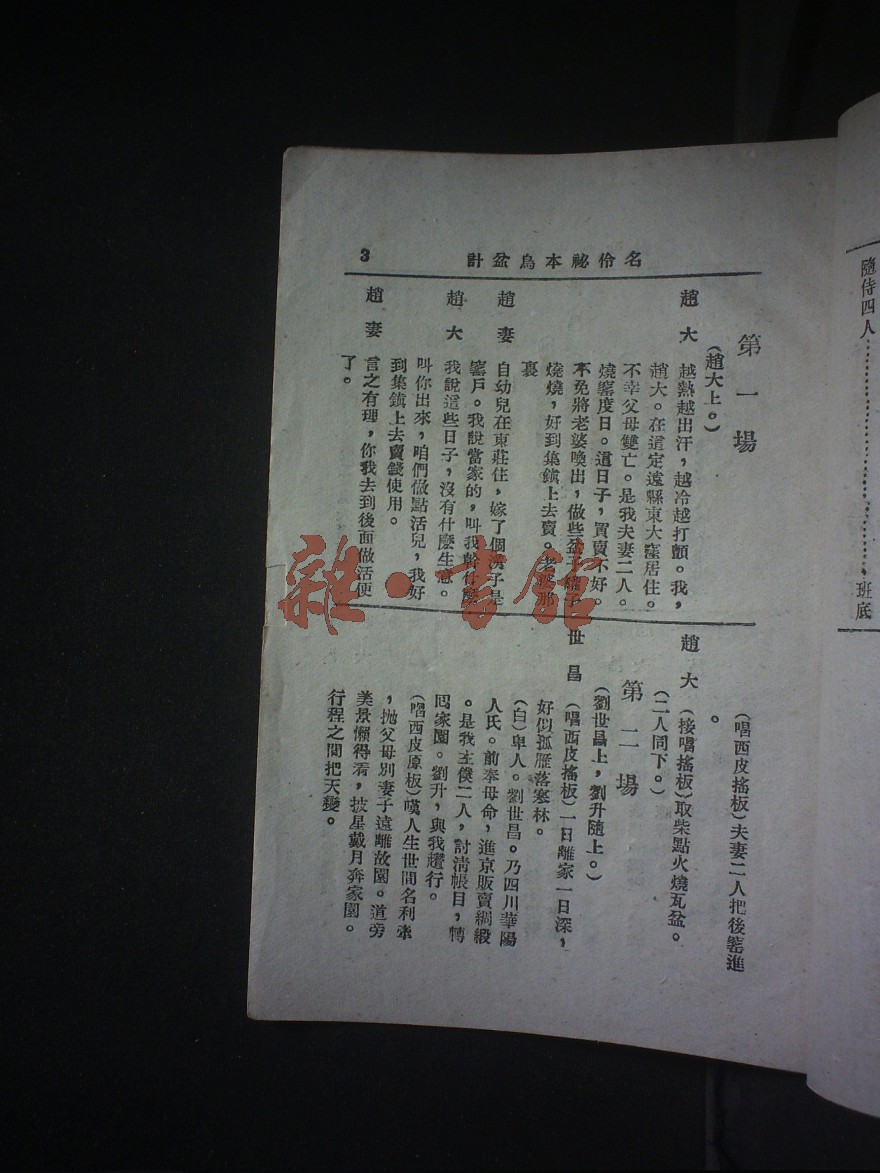 隨侍四人……………………班底
名伶祕本烏盆計
3
第一場
(趙大上。)
趙大 越熱越出汗，越冷越打顫。我，
趙大。在這定遠縣東大窪居住。
不幸父母雙亡。是我夫妻二人。
燒窰度日。這日子，買賣不好。
不免將老婆喚出，做些盆子罐子
燒燒，好到集鎭上去賣。老婆那
裏
趙妻 自幼兒在東莊住，嫁了個漢子是
窰戶。我說當家的，叫我幹什麼
趙大 我說這些日子，沒有什麼生意。
叫你出來，咱們做點活兒，我好
到集鎭上去賣錢使用。
趙妻 言之有理，你我去到後面做活便
了。
(唱西皮搖板)夫妻二人把後窰進
。
趙大 (接唱搖板)取柴點火燒瓦盆。
(二人同下。)
第二場
(劉世昌上，劉升隨上。)
世昌 (唱西皮搖板)一日離家一日深，
好似孤雁落寒林。
(白)卑人。劉世昌。乃四川華陽
人氏。前奉母命，進京販賣綢緞
。是我主僕二人，討淸帳目，轉
囘家園。劉升，與我趲行。
(唱西皮原板)嘆人生世間名利牽
，拋父母別妻子遠離故園。道旁
美景懶得看，披星戴月奔家園。
行程之間把天變。
雜·書館